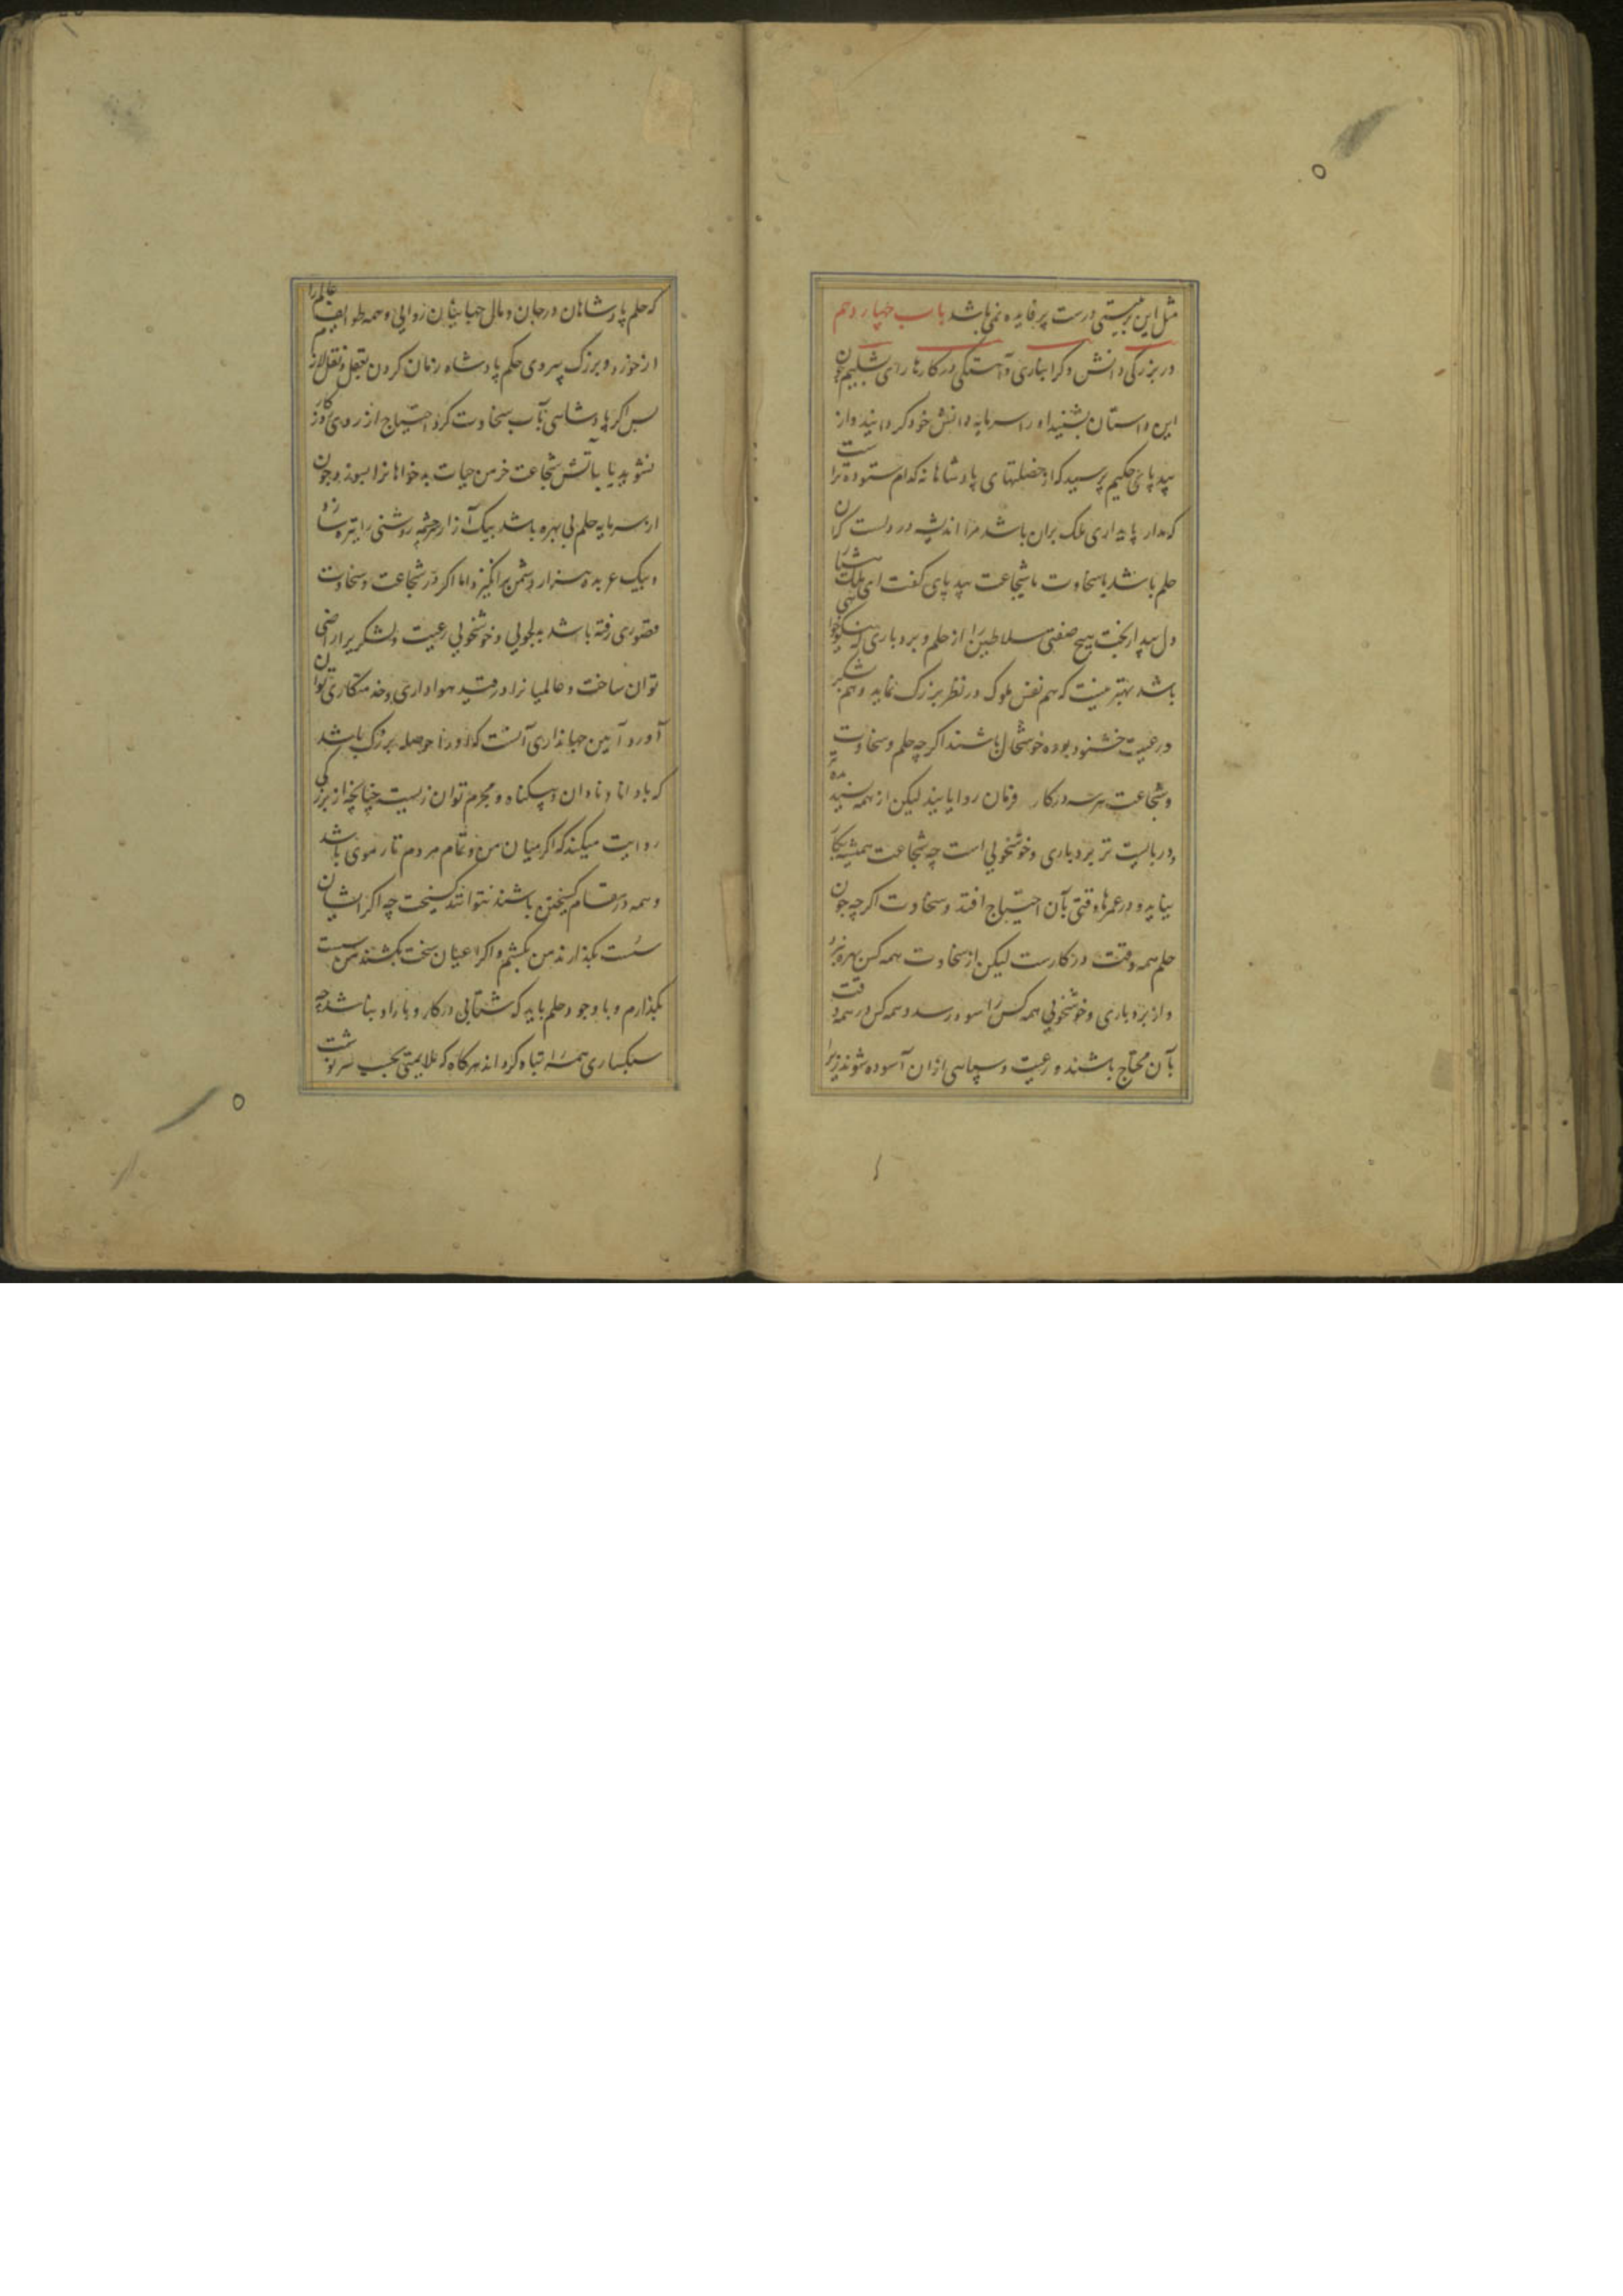 مثل این تربیتی درست پر فایده نمی باشد باب چهاردهم
در بزرگی دانش و گرانباری و آهستگی در کارها رای دابشلیم چون
این داستان بشنید او را سرمایه دانش خود گردانید و از
بیدپای حکیم پرسید که از خصلتهای پادشاهان کدام ستوده ترست
که مدار پایداری ملک بران باشد مرا اندیشه در دلست که آن
حلم باشد یا سخاوت یا شجاعت بیدپای گفت ای ملک
دل بیدار بخت هیچ صفتی سلاطین را از حلم و بردباری که نیکوخواهی
باشد بهتر نیست که هم نفس ملوک در نظر بزرگ نماید و هم لشکر
و رعیت خشنود بوده خوشحال باشند اگر چه حلم و سخاوت
و شجاعت هر سه در کار فرمان روایانند لیکن از همه پسندیده تر
و دربایست تر بردباری و خوشخویی است چه شجاعت همیشه بکار
نیاید و در عمرها وقتی بآن احتیاج افتد و سخاوت اگر چه چون
حلم همه وقت در کارست لیکن از سخاوت همه کس بهره نبرد
و از بردباری و خوشخویی همه کس را سود رسد و همه کس در همه وقت
بآن محتاج باشند و رعیت و سپاهی ازان آسوده شوند زیرا
که حلم پادشاهان در جان و مال جهانیان روایی و همه طوایف عالم را
از خورد و بزرگ پیروی حکم پادشاه زمان کردن بعقل و نقل لازم
پس اگر پادشاهی بآب سخاوت گرد احتیاج از روی کار
نشوید یا بآتش شجاعت خرمن حیات بدخواهانرا بسوزد و چون
از سرمایه حلم بی بهره باشد بیک آزار سرچشمه روشنی را تیره سازد
و بیک عربده هزار دشمن برانگیزد اما اگر در شجاعت و سخاوت
قصوری رفته باشد بدلجویی و خوشخویی رعیت و لشکر را راضی
توان ساخت و عالمیانرا در قید هواداری و خدمتکاری توان
آورد و آیین جهانداری آنست که او را حوصله بزرگ باشد
که با دانا و نادان و بیگناه و مجرم توان زیست چنانچه از بزرگی
روایت میکنند که اگر میان من و تمام مردم تار موی باشد
و همه در مقام گسیختن باشند نتوانند گسیخت چه اگر ایشان
سست بگذارند من بکشم و اگر اعیان سخت بکشند من سست
بگذارم و با وجود حلم باید که شتابی در کار و بار او نباشد چه
سبکساری همه را تباه گرداند هرگاه که علایمتی بحسب سرنوشت